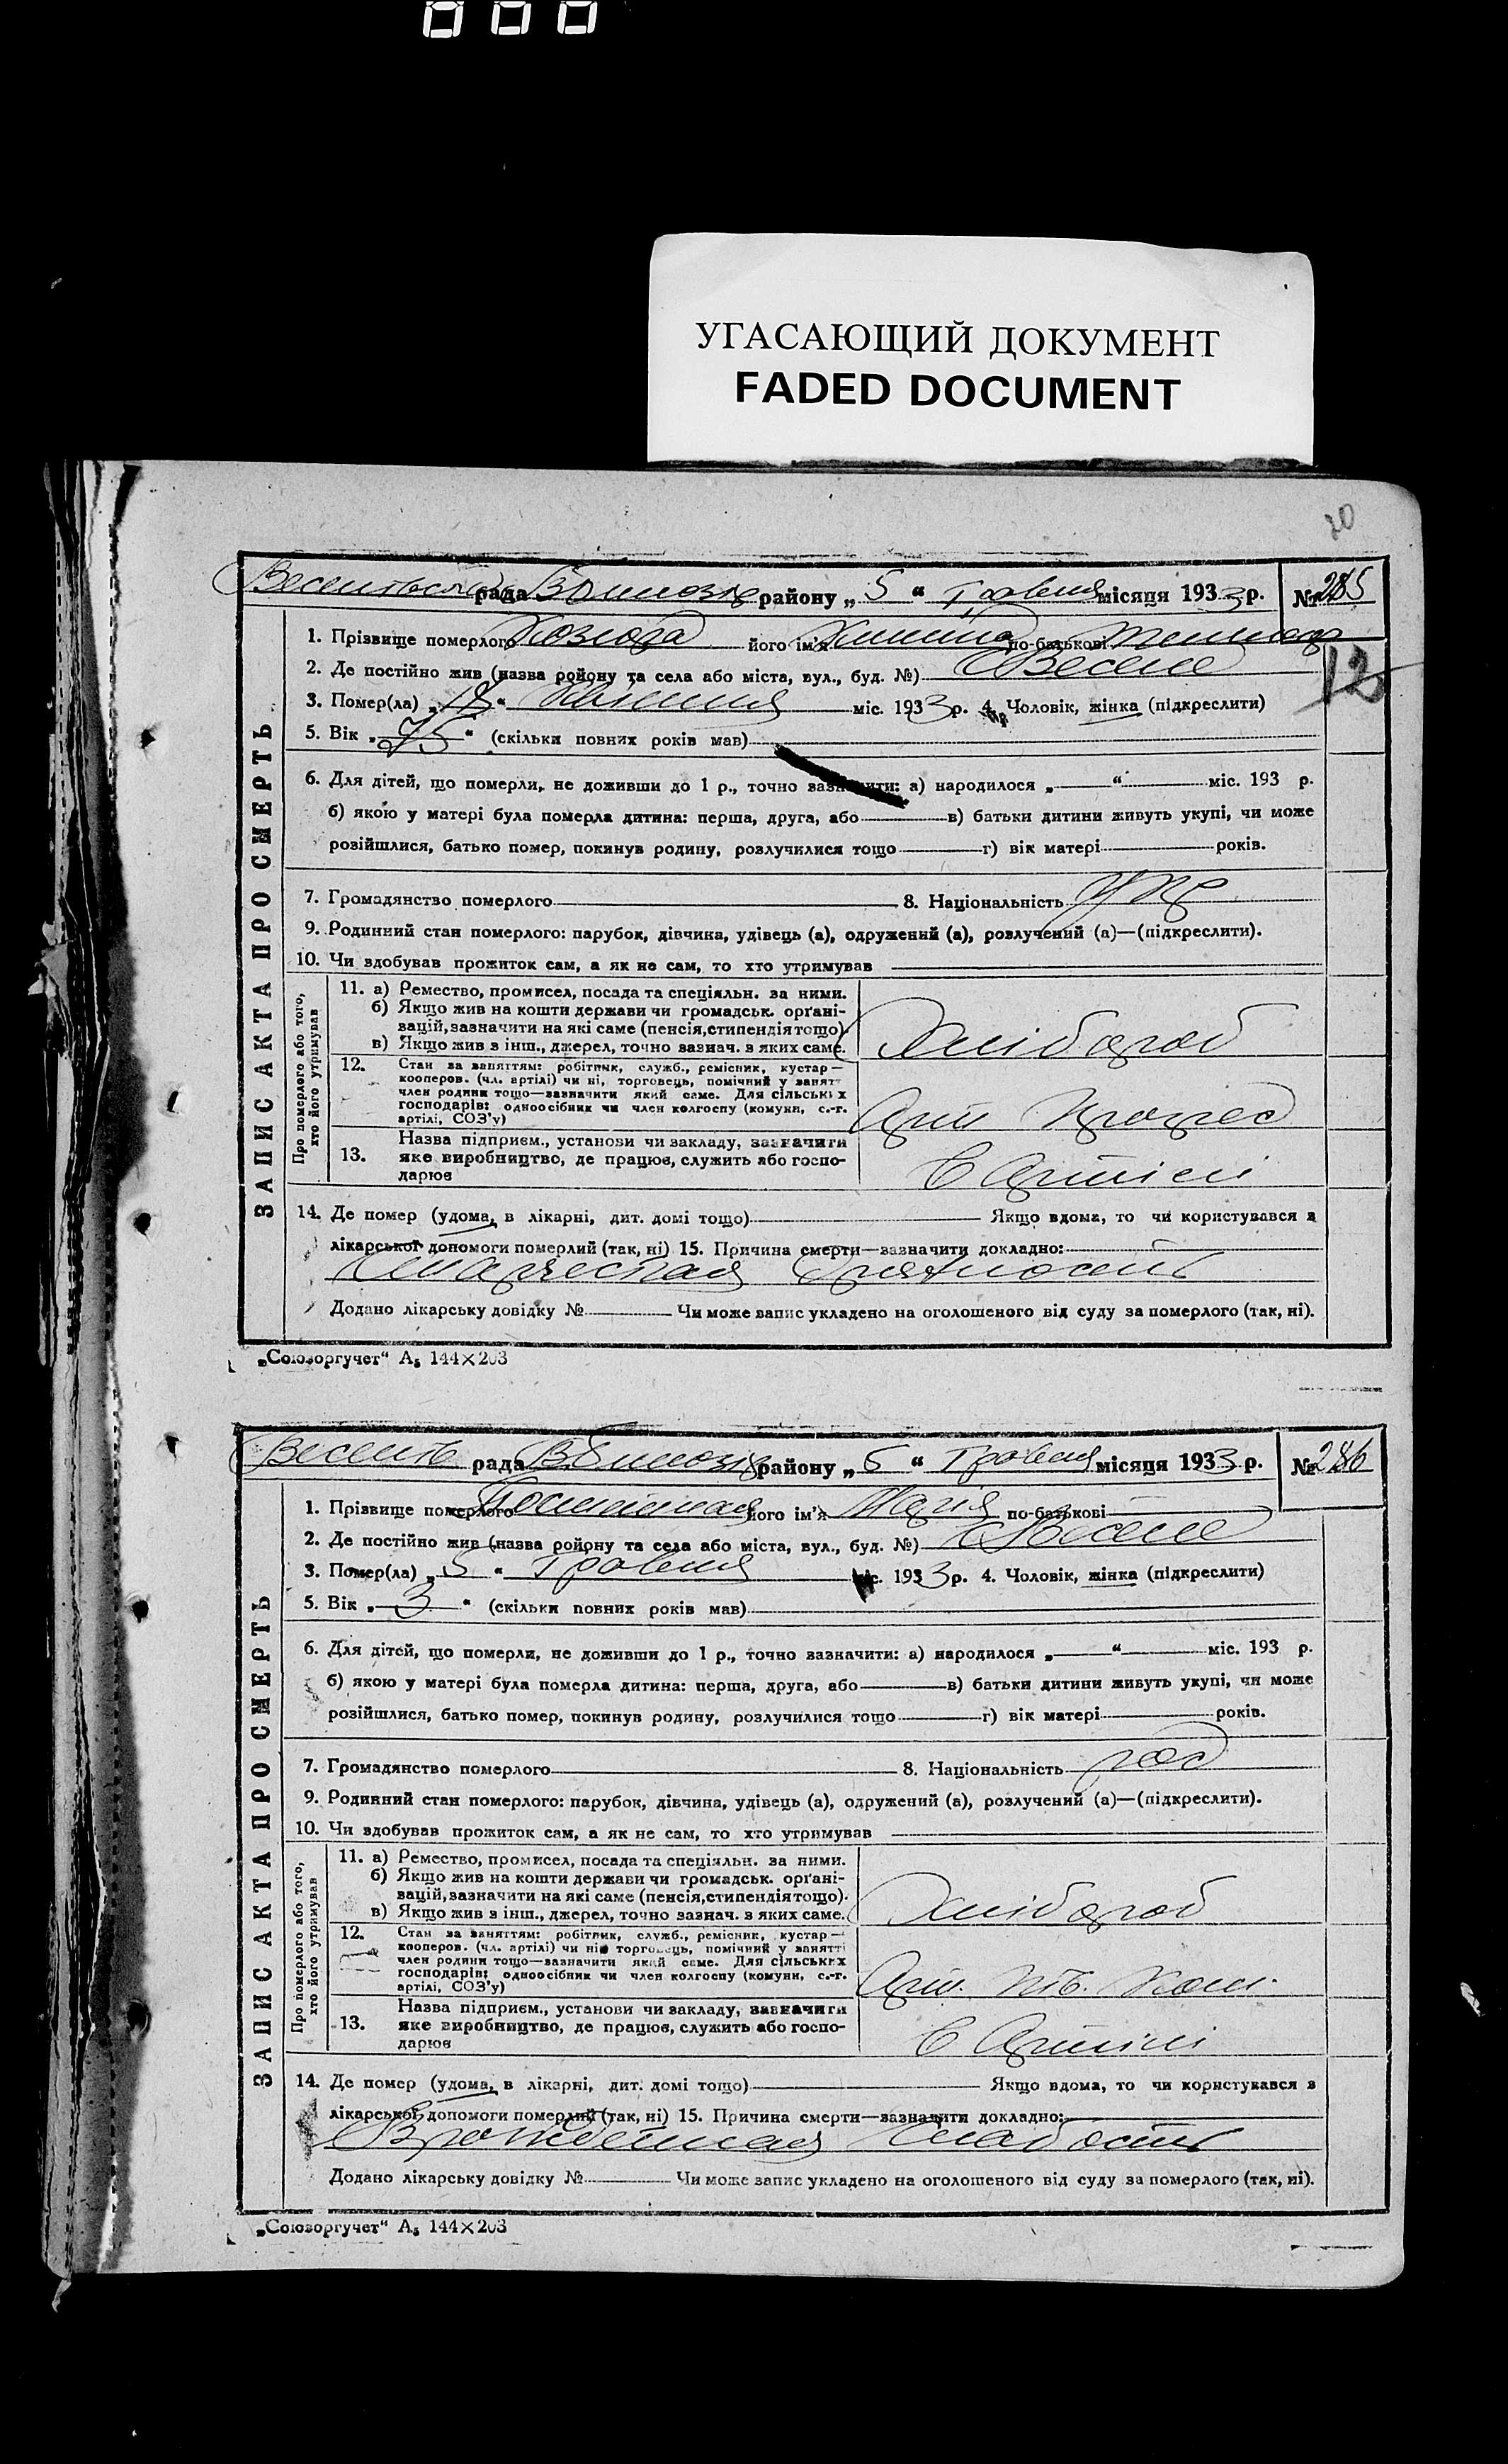 УГАСАЮЩИЙ ДОКУМЕНТ
FADED DOCUMENT
20
ЗАПИС АКТА ПРО СМЕРТЬ
рада району „ 5 “ Травня місяця 1933 р. № 285
1. Прізвище померлого Козюда його ім'я по-батькові
12
2. Де постійно жив (назва ройону та села або міста, вул., буд. №) с Веселе
3. Помер(ла) „ “ міс. 1933 р. 4. Чоловік, жінка (підкреслити)
5. Вік „ 75 “ (скільки повних років мав)
6. Для дітей, що померли, не доживши до 1 р., точно зазначити: а) народилося „ “ міс. 193 р.
б) якою у матері була померла дитина: перша, друга, або в) батьки дитини живуть укупі, чи може
розійшлися, батько помер, покинув родину, розлучилися тощо г) вік матері років.
7. Громадянство померлого 8. Національність Укр
9. Родинний стан померлого: парубок, дівчина, удівець (а), одружений (а), розлучений (а)—(підкреслити).
10. Чи здобував прожиток сам, а як не сам, то хто утримував
Про померлого або того, хто його утримував
11. а) Ремество, промисел, посада та спеціяльн. за ними.
б) Якщо жив на кошти держави чи громадськ. орґані-
зацій, зазначити на які саме (пенсія, стипендія тощо).
в) Якщо жив з інш., джерел, точно зазнач. з яких саме.
Хлібороб
12. Стан за заняттям: робітник, служб., ремісник, кустар—
кооперов. (чл. артілі) чи ні, торговець, помічний у занятт
член родини тощо—зазначити який саме. Для сільських
господарів: одноосібник чи член колгоспу (комуни, с.-г.
артілі, СОЗ'у)
Арт Прогрес
13. Назва підприєм., установи чи закладу, зазначити
яке виробництво, де працює, служить або госпо-
дарює
В Артілі
14. Де помер (удома, в лікарні, дит. домі тощо) Якщо вдома, то чи користувався з
лікарської допомоги померлий (так, ні) 15. Причина смерти—зазначити докладно:
Старческая дряхлость
Додано лікарську довідку № Чи може запис укладено на оголошеного від суду за померлого (так, ні).
„Союзоргучет“ А₅ 144×203
ЗАПИС АКТА ПРО СМЕРТЬ
рада району „ 5 “ Травня місяця 1933 р. № 286
1. Прізвище померлого його ім'я Марія по-батькові
2. Де постійно жив (назва ройону та села або міста, вул., буд. №) с Веселе
3. Помер(ла) „ 5 “ Травня міс. 1933 р. 4. Чоловік, жінка (підкреслити)
5. Вік „ 3 “ (скільки повних років мав)
6. Для дітей, що померли, не доживши до 1 р., точно зазначити: а) народилося „ “ міс. 193 р.
б) якою у матері була померла дитина: перша, друга, або в) батьки дитини живуть укупі, чи може
розійшлися, батько помер, покинув родину, розлучилися тощо г) вік матері років.
7. Громадянство померлого 8. Національність рос
9. Родинний стан померлого: парубок, дівчина, удівець (а), одружений (а), розлучений (а)—(підкреслити).
10. Чи здобував прожиток сам, а як не сам, то хто утримував
Про померлого або того, хто його утримував
11. а) Ремество, промисел, посада та спеціяльн. за ними.
б) Якщо жив на кошти держави чи громадськ. орґані-
зацій, зазначити на які саме (пенсія, стипендія тощо).
в) Якщо жив з інш., джерел, точно зазнач. з яких саме.
Хлібороб
12. Стан за заняттям: робітник, служб., ремісник, кустар—
кооперов. (чл. артілі) чи ні, торговець, помічний у занятті
член родини тощо—зазначити який саме. Для сільських
господарів: одноосібник чи член колгоспу (комуни, с.-г.
артілі, СОЗ'у)
Арт.
13. Назва підприєм., установи чи закладу, зазначити
яке виробництво, де працює, служить або госпо-
дарює
В Артілі
14. Де помер (удома, в лікарні, дит. домі тощо) Якщо вдома, то чи користувався з
лікарської допомоги померлий (так, ні) 15. Причина смерти—зазначити докладно:
Врожденная слабость
Додано лікарську довідку № Чи може запис укладено на оголошеного від суду за померлого (так, ні).
„Союзоргучет“ А₅ 144×203